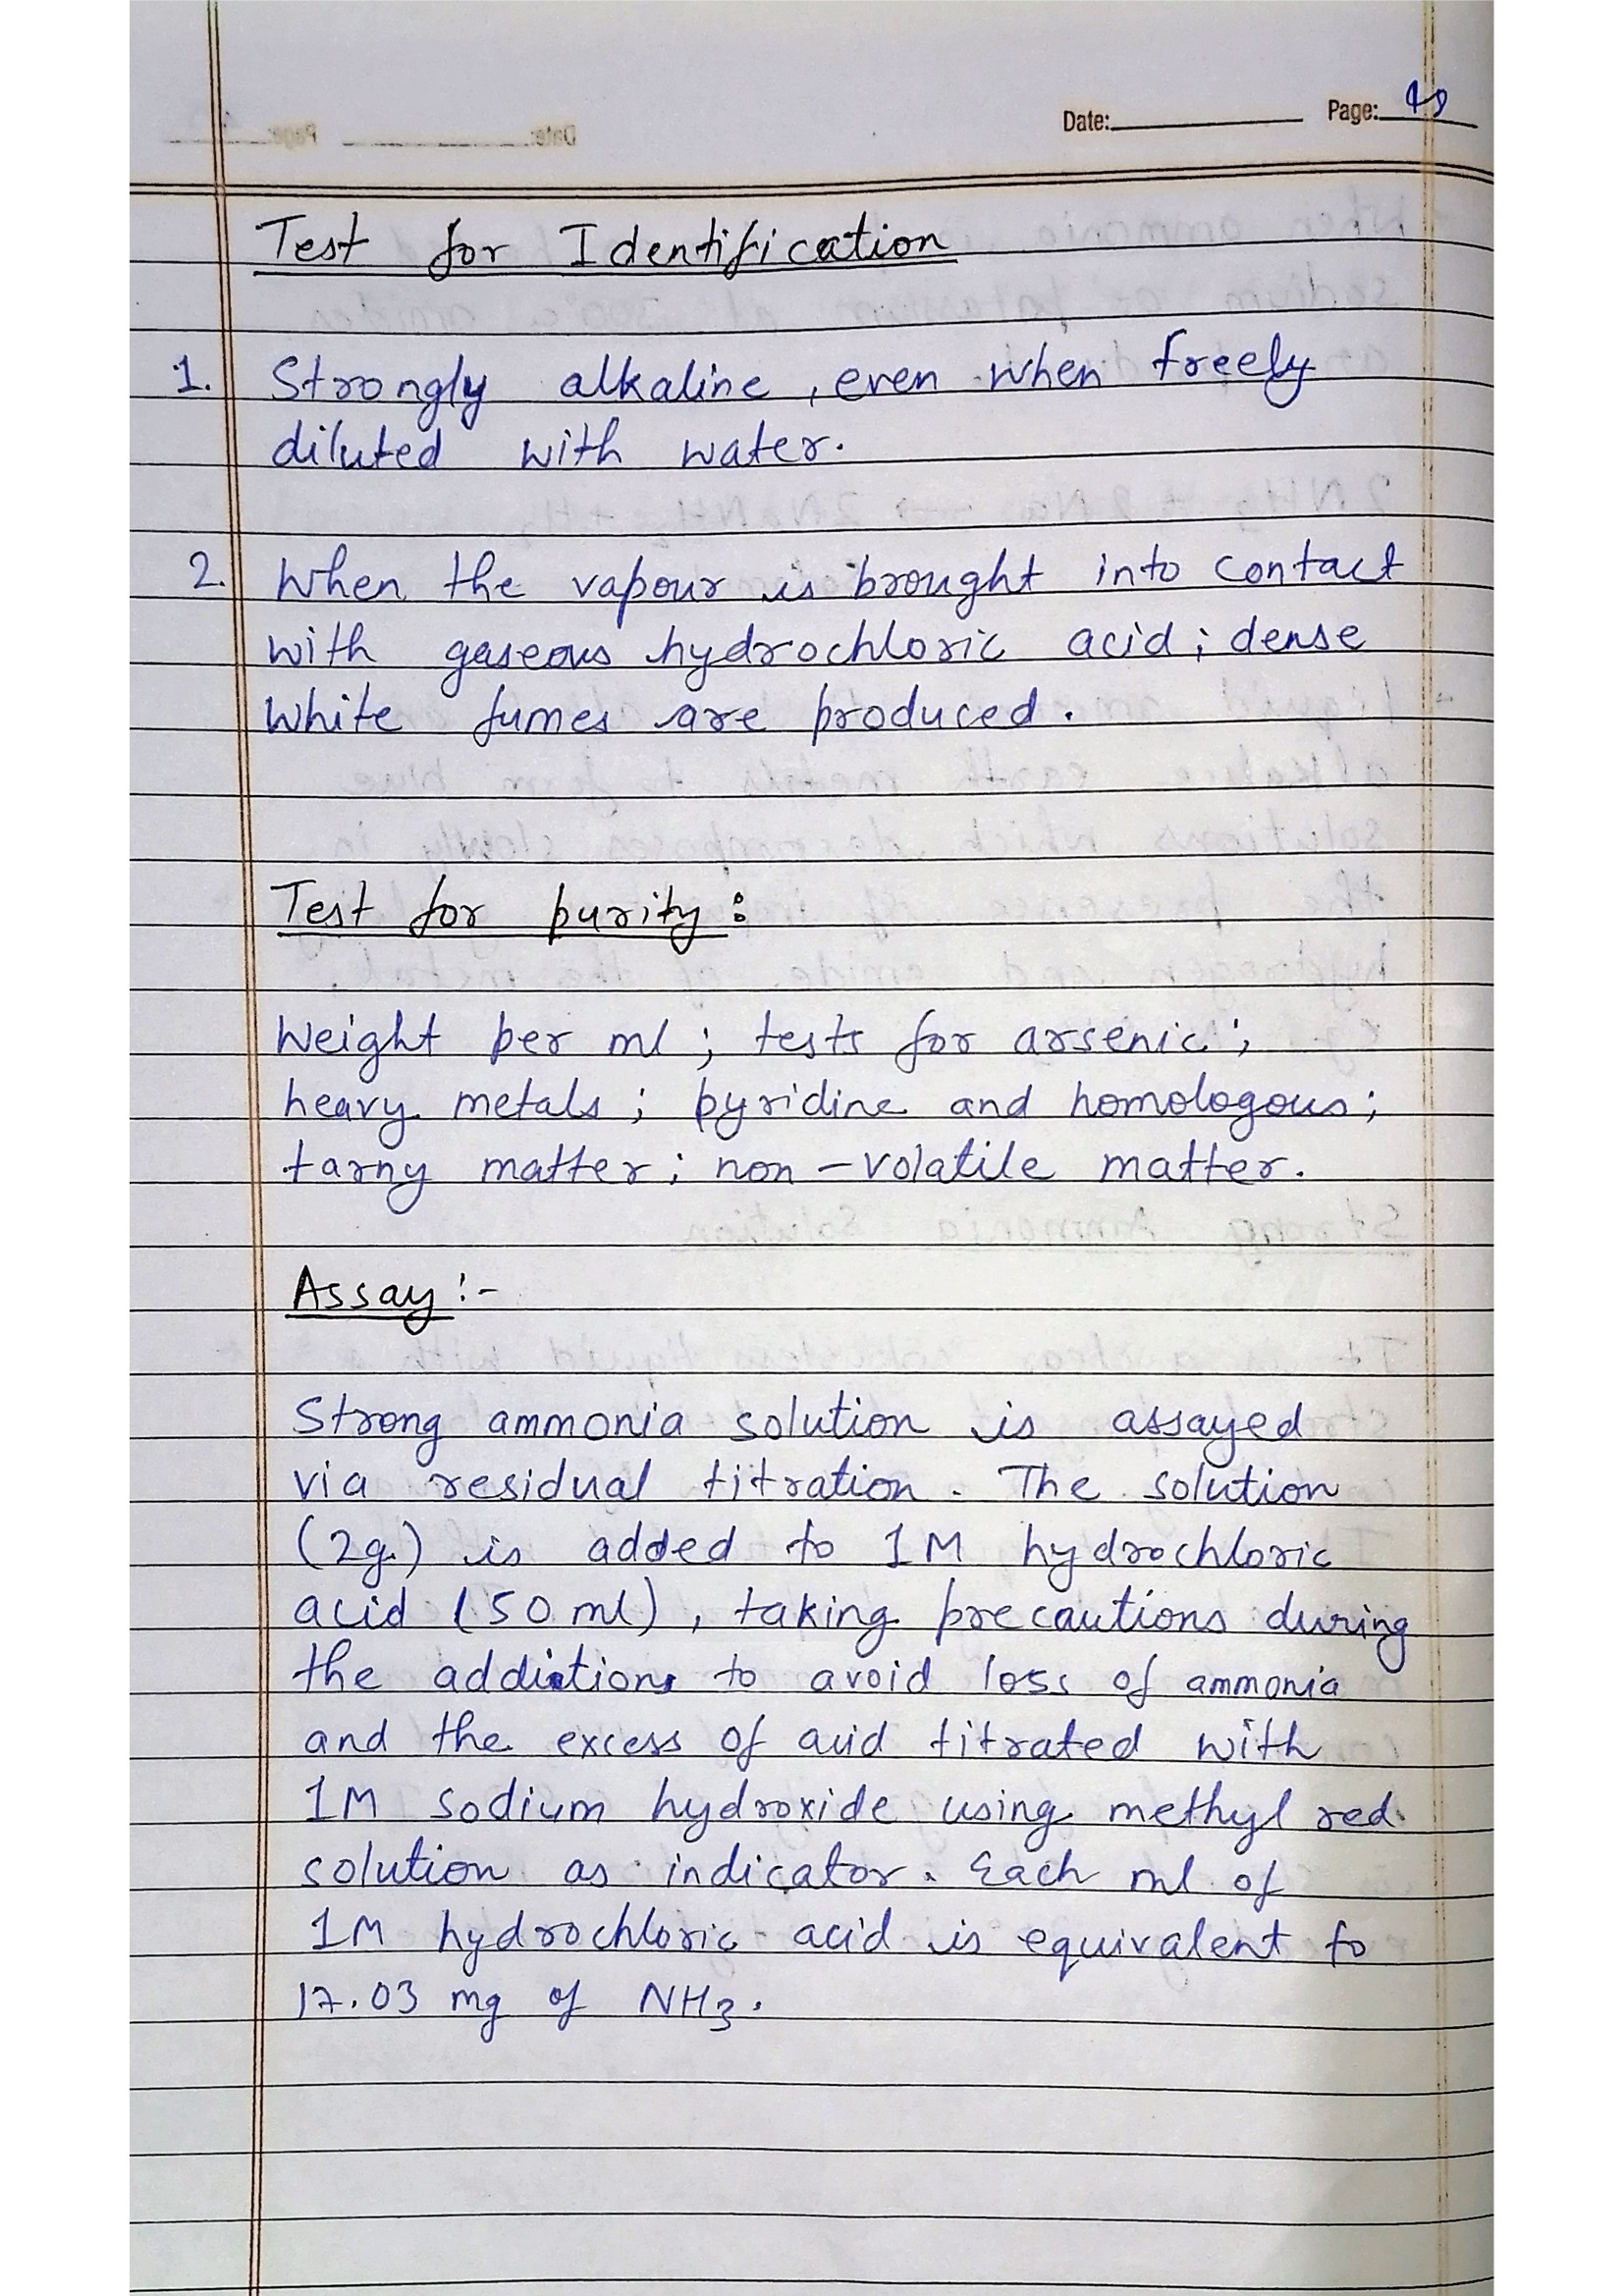 Date: Page: 40
Test for Identification
1. Strongly alkaline, even when freely
diluted with water.
2. When the vapour is brought into contact
with gaseous hydrochloric acid; dense
white fumes are produced.
Test for purity:
Weight per ml; tests for arsenic;
heavy metals; pyridine and homologous;
tarny matter; non-volatile matter.
Assay:-
Strong ammonia solution is assayed
via residual titration. The solution
(2g.) is added to 1M hydrochloric
acid (50 ml), taking precautions during
the addiation to avoid loss of ammonia
and the excess of acid titrated with
1M sodium hydroxide using methyl red
solution as indicator. Each ml of
1M hydrochloric acid is equivalent to
17.03 mg of NH3.